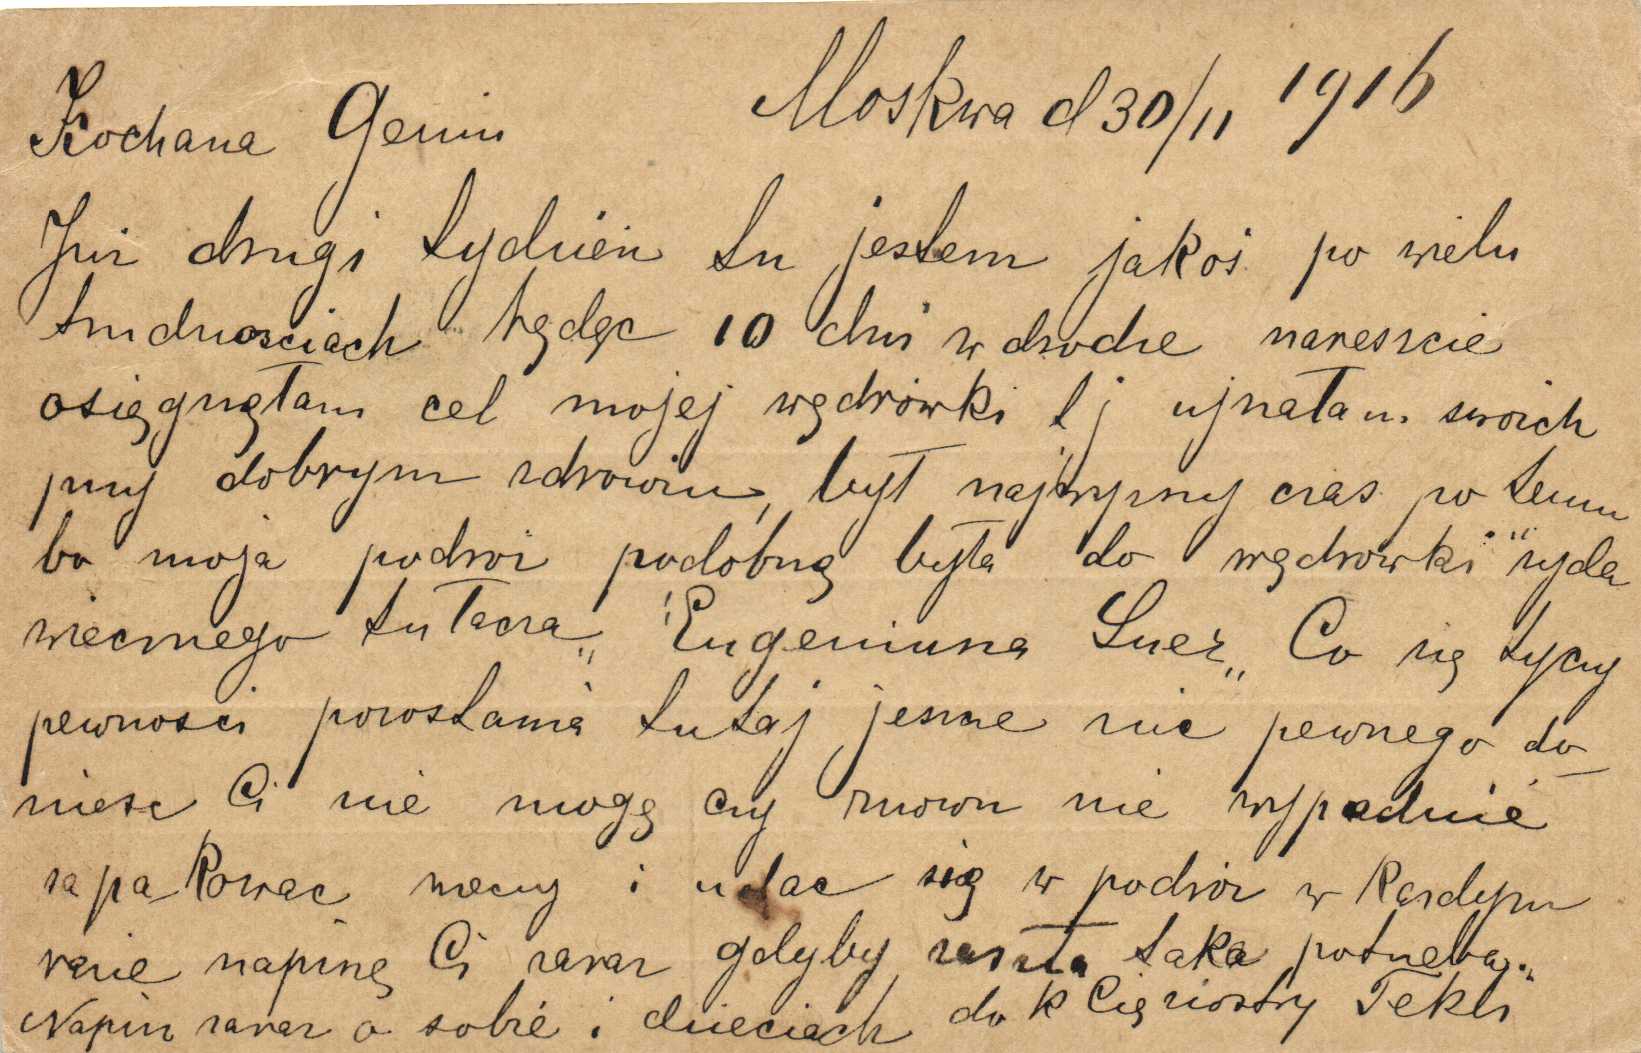 Moskwa d 30/11 1916
Kochana Geniu
Już drugi tydzień tu jestem jakoś po wielu
trudnosciach będąc 10 dni w drodze nareszcie
osięgnęłam cel mojej wędrówki tj ujrzałam swoich
przy dobrym zdrowiu, był najwyższy czas po temu
bo moja podroż podobną była do wędrowki "żyda
wiecznego tułacza„ "Eugeniusza Sueż„ Co się tyczy
pewnosci pozostania tutaj jeszcze nic pewnego do-
niesc Ci nie mogę czy znowu nie wypadnie
zapakowac rzeczy i udac się w podróż w każdym
razie napiszę Ci zaraz gdyby zaszła taka potrzeba.
Napisz zaraz o sobie i dzieciach do siostry Tekli